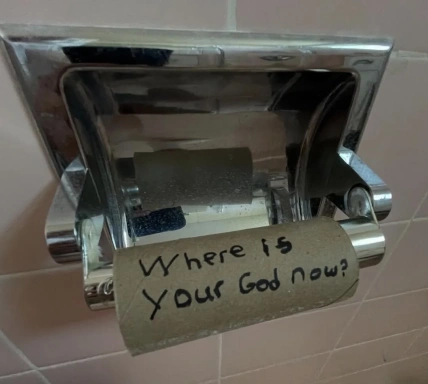 Where is
Your God now?